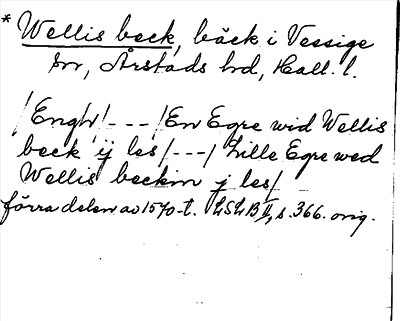 * Wellis beck, bäck i Vessige
sn, Årstads hd, Hall. l.
/Engh/ /---/ En Egre wid Wellis
beck ij les /---/ Lille Egre wed
Wellis beckin j les/
förra delen av 1570-t. LSLB II, s. 366. orig.